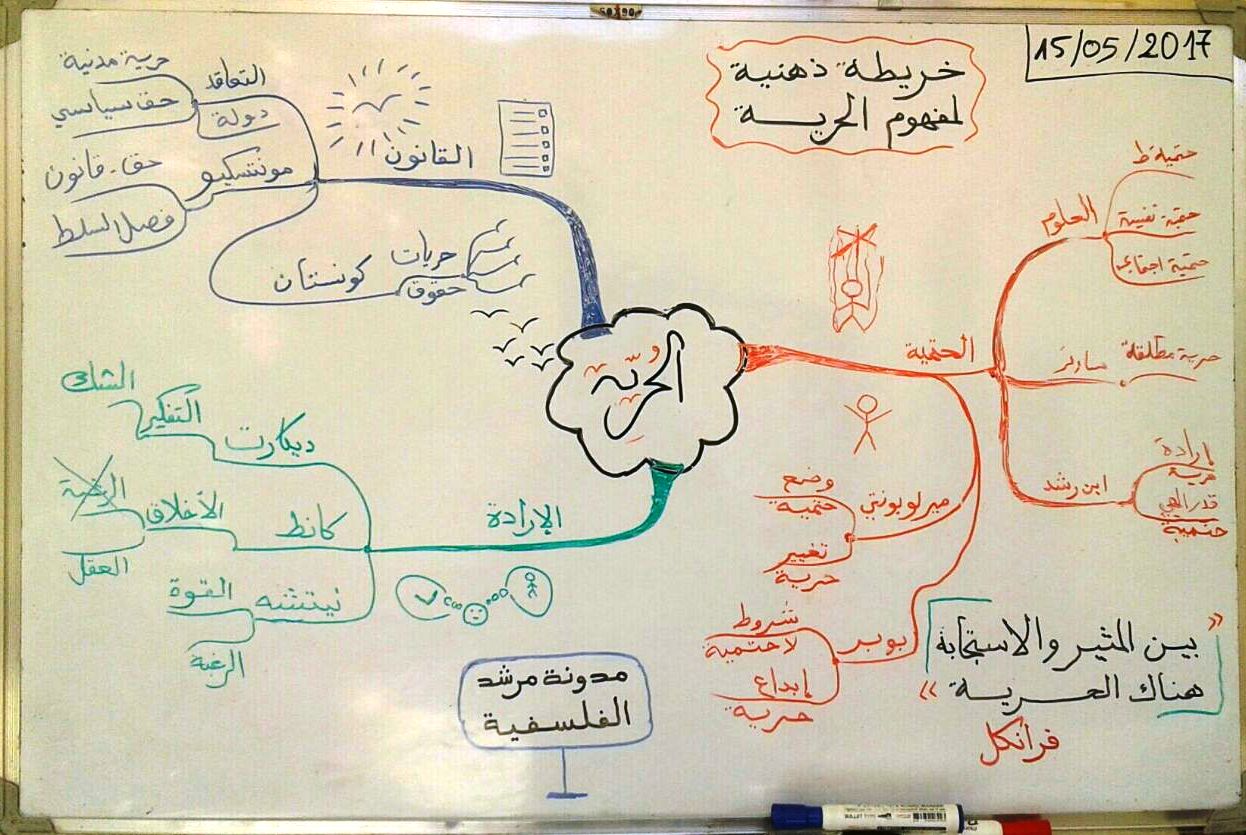 50x90
15/05/2017
خريطة ذهنية
لمفهوم الحريــــة
الحرية
القانون
التعاقد
دولة
حرية مدنية
حق سياسي
مونتسكيو
حق - قانون
فصل السلط
كونستان
حريات
حقوق
الحتمية
العلوم
حتمية ط
حتمية نفسية
حتمية اجتماعية
سارتر
حرية مطلقة
ابن رشد
إرادة
حرية
قدر إلهي
حتمية
ميرلوبونتي
وضع
حتمية
تغيير
حرية
بوبر
شروط
لا حتمية
إبداع
حرية
الإرادة
ديكارت
التفكير
الشك
كانط
الأخلاق
الرغبة
العقل
نيتشه
القوة
الرغبة
« بين المثير والاستجابة
هناك الحريــــة »
فرانكل
مدونة مرشد
الفلسفية